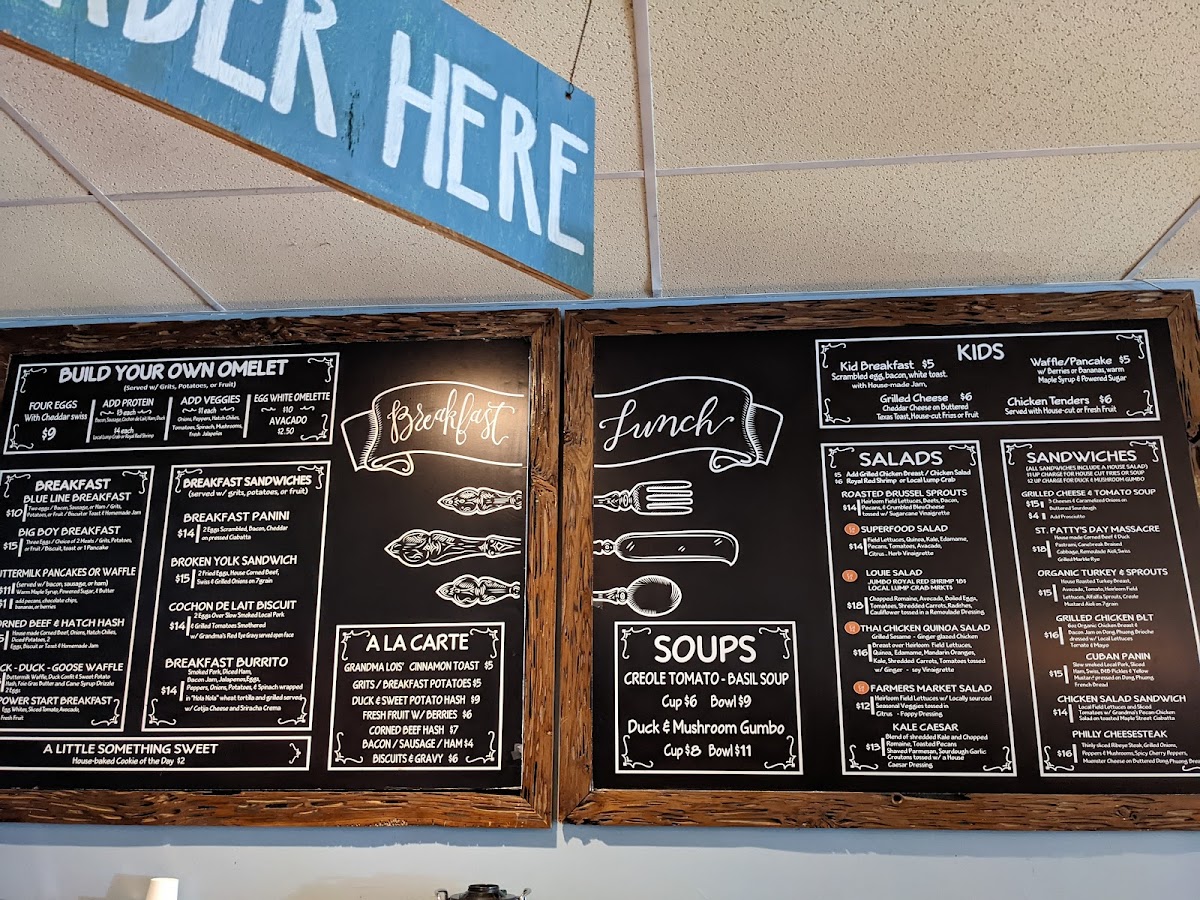 DER HERE
BUILD YOUR OWN OMELET
(Served w/ Grits, Potatoes, or Fruit)
FOUR EGGS
With Cheddar swiss
$9
ADD PROTEIN
Bacon, Sausage, Cochon de Lait, Ham, Duck
Local Lump Crab or Royal Red Shrimp
ADD VEGGIES
Onions, Peppers, Hatch Chiles,
Tomatoes, Spinach, Mushrooms,
Fresh Jalapeños
EGG WHITE OMELETTE
$10
AVACADO
$2.50
Breakfast
BREAKFAST
BLUE LINE BREAKFAST
$10
Two eggs / Bacon, Sausage, or Ham / Grits,
Potatoes, or Fruit / Biscuit or Toast & Homemade Jam
BIG BOY BREAKFAST
$15
Three Eggs / Choice of 2 Meats / Grits, Potatoes,
or Fruit / Biscuit, toast, or 1 Pancake
UTTERMILK PANCAKES OR WAFFLE
$11
(served w/ bacon, sausage, or ham)
Warm Maple Syrup, Powered Sugar, & Butter
$1
add pecans, chocolate chips,
bananas, or berries
ORNED BEEF & HATCH HASH
House made Corned Beef, Onions, Hatch Chiles,
Diced Potatoes, 2
Eggs, Biscuit or Toast & Homemade Jam
CK - DUCK - GOOSE WAFFLE
Buttermilk Waffle, Duck Confit & Sweet Potato
Hash, Foie Gras Butter and Cane Syrup Drizzle
2 Eggs
POWER START BREAKFAST
Egg Whites, Sliced Tomato, Avocado,
Fresh Fruit
BREAKFAST SANDWICHES
(served w/ grits, potatoes, or fruit)
BREAKFAST PANINI
$14
2 Eggs Scrambled, Bacon, Cheddar
on pressed Ciabatta
BROKEN YOLK SANDWICH
$15
2 Fried Eggs, House Corned Beef,
Swiss & Grilled Onions on 7grain
COCHON DE LAIT BISCUIT
$14
2 Eggs Over Slow Smoked Local Pork
& Grilled Tomatoes Smothered
w/ Grandma's Red Eye Gravy served open face
BREAKFAST BURRITO
$14
Smoked Pork, Diced Ham,
Bacon Jam, Jalapenos, Eggs,
Peppers, Onions, Potatoes, & Spinach wrapped
in "Hola Nola" wheat tortilla and grilled served
w/ Cotija Cheese and Sriracha Crema
A LITTLE SOMETHING SWEET
House-baked Cookie of the Day $2
A LA CARTE
GRANDMA LOIS' CINNAMON TOAST $5
GRITS / BREAKFAST POTATOES $5
DUCK & SWEET POTATO HASH $9
FRESH FRUIT W/ BERRIES $6
CORNED BEEF HASH $7
BACON / SAUSAGE / HAM $4
BISCUITS & GRAVY $6
Lunch
SOUPS
CREOLE TOMATO - BASIL SOUP
Cup $6 Bowl $9
Duck & Mushroom Gumbo
Cup $8 Bowl $11
KIDS
Kid Breakfast $5
Scrambled egg, bacon, white toast
with House-made Jam,
Waffle/Pancake $5
w/ Berries or Bananas, warm
Maple Syrup & Powered Sugar
Grilled Cheese $6
Cheddar Cheese on Buttered
Texas Toast, House-cut Fries or Fruit
Chicken Tenders $6
Served with House-cut or Fresh Fruit
SALADS
$5 Add Grilled Chicken Breast / Chicken Salad
$6 Royal Red Shrimp or Local Lump Crab
ROASTED BRUSSEL SPROUTS
$14
Heirloom Field Lettuces, Beets, Bacon,
Pecans, & Crumbled Bleu Cheese
tossed w/ Sugarcane Vinaigrette
SUPERFOOD SALAD
$14
Field Lettuces, Quinoa, Kale, Edamame,
Pecans, Tomatoes, Avocado,
Citrus - Herb Vinaigrette
LOUIE SALAD
JUMBO ROYAL RED SHRIMP 18$
LOCAL LUMP CRAB MRKT$
$18
Chopped Romaine, Avocado, Boiled Eggs,
Tomatoes, Shredded Carrots, Radishes,
Cauliflower tossed in a Remoulade Dressing
THAI CHICKEN QUINOA SALAD
$16
Grilled Sesame - Ginger glazed Chicken
Breast over Heirloom Field Lettuces,
Quinoa, Edamame, Mandarin Oranges,
Kale, Shredded Carrots, Tomatoes tossed
w/ Ginger - soy Vinaigrette
FARMERS MARKET SALAD
$12
Heirloom Field Lettuces w/ Locally sourced
Seasonal Veggies tossed in
Citrus - Poppy Dressing
KALE CAESAR
$13
Blend of shredded Kale and Chopped
Romaine, Toasted Pecans
Shaved Parmesan, Sourdough Garlic
Croutons tossed w/ a House
Caesar Dressing
SANDWICHES
(ALL SANDWICHES INCLUDE A HOUSE SALAD)
$1 UP CHARGE FOR HOUSE CUT FRIES OR SOUP
$2 UP CHARGE FOR DUCK & MUSHROOM GUMBO
GRILLED CHEESE & TOMATO SOUP
$15
3 Cheeses & Caramelized Onions on
Buttered Sourdough
$4 Add Prosciutto
ST. PATTY'S DAY MASSACRE
$18
House made Corned Beef & Duck
Pastrami, Canebreak Braised
Cabbage, Remoulade Aioli, Swiss
Grilled Marble Rye
ORGANIC TURKEY & SPROUTS
$15
House Roasted Turkey Breast,
Avocado, Tomato, Heirloom Field
Lettuces, Alfalfa Sprouts, Creole
Mustard Aioli on 7grain
GRILLED CHICKEN BLT
$16
6oz Organic Chicken Breast &
Bacon Jam on Dong Phuong Brioche
dressed w/ Local Lettuces
Tomato & Mayo
CUBAN PANIN
$15
Slow smoked Local Pork, Sliced
Ham, Swiss, B&B Pickles & Yellow
Mustard pressed on Dong Phuong
French Bread
CHICKEN SALAD SANDWICH
$14
Local Field Lettuces and Sliced
Tomatoes w/ Grandma's Pecan-Chicken
Salad on toasted Maple Street Ciabatta
PHILLY CHEESESTEAK
$16
Thinly sliced Ribeye Steak, Grilled Onions,
Peppers & Mushrooms, Spicy Cherry Peppers,
Muenster Cheese on Buttered Dong Phuong Brea